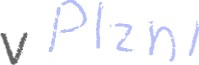 v Plzni